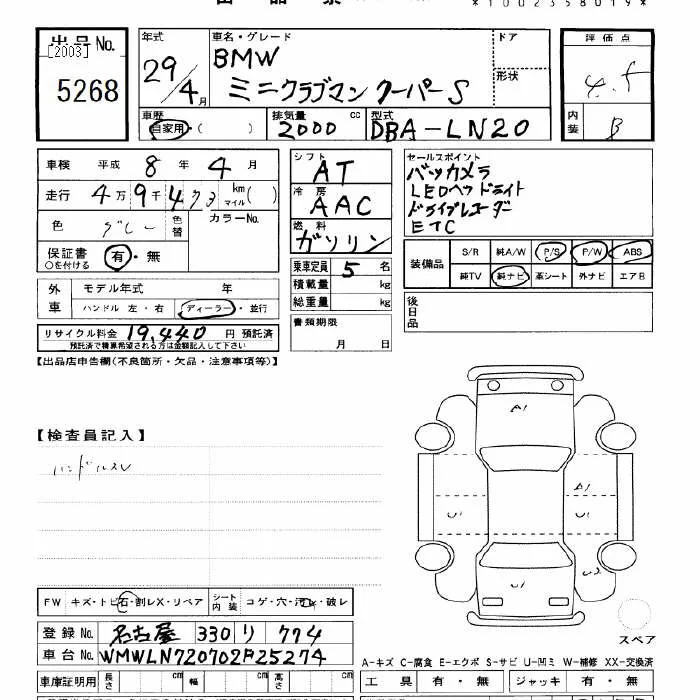 *1002358019*
出品No.
[2003]
5268
年式
29/4月
車名・グレード
BMW
ミニクラブマン クーパーS
ドア
形状
評価点
4.5
内装
B
車歴
自家用・( )
排気量
2000 cc
型式
DBA-LN20
車検 平成 8年 4月
走行 4万9千4 km マイル( )
色 グレー 色替 カラーNo.
保証書 有・無
○を付ける
外車 モデル年式 年
ハンドル 左・右 ディーラー・並行
リサイクル料金 19,440 円 預託済
預託済で精算希望される方は金額記入して下さい
シフト AT
冷房 AAC
燃料 ガソリン
乗車定員 5 名
積載量 kg
総重量 kg
書類期限
月 日
セールスポイント
バックカメラ
LEDヘッドライト
ドライブレコーダー
ETC
装備品 S/R 純A/W P/S P/W ABS
純TV 純ナビ 革シート 外ナビ エアB
後日品
【出品店申告欄(不良箇所・欠品・注意事項等)】
【検査員記入】
ハンドルスレ
A1
A1
U1
U1
U1
U2
スペア
FW キズ・トビ石・割レX・リペア シート内装 コゲ・穴・汚レ・破レ
登録No. 名古屋 330 り 774
車台No. WMWLN720702F25274
A-キズ C-腐食 E-エクボ S-サビ U-凹ミ W-補修 XX-交換済
車庫証明用 長さ cm 幅 cm 高さ cm
工具 有・無 ジャッキ 有・無